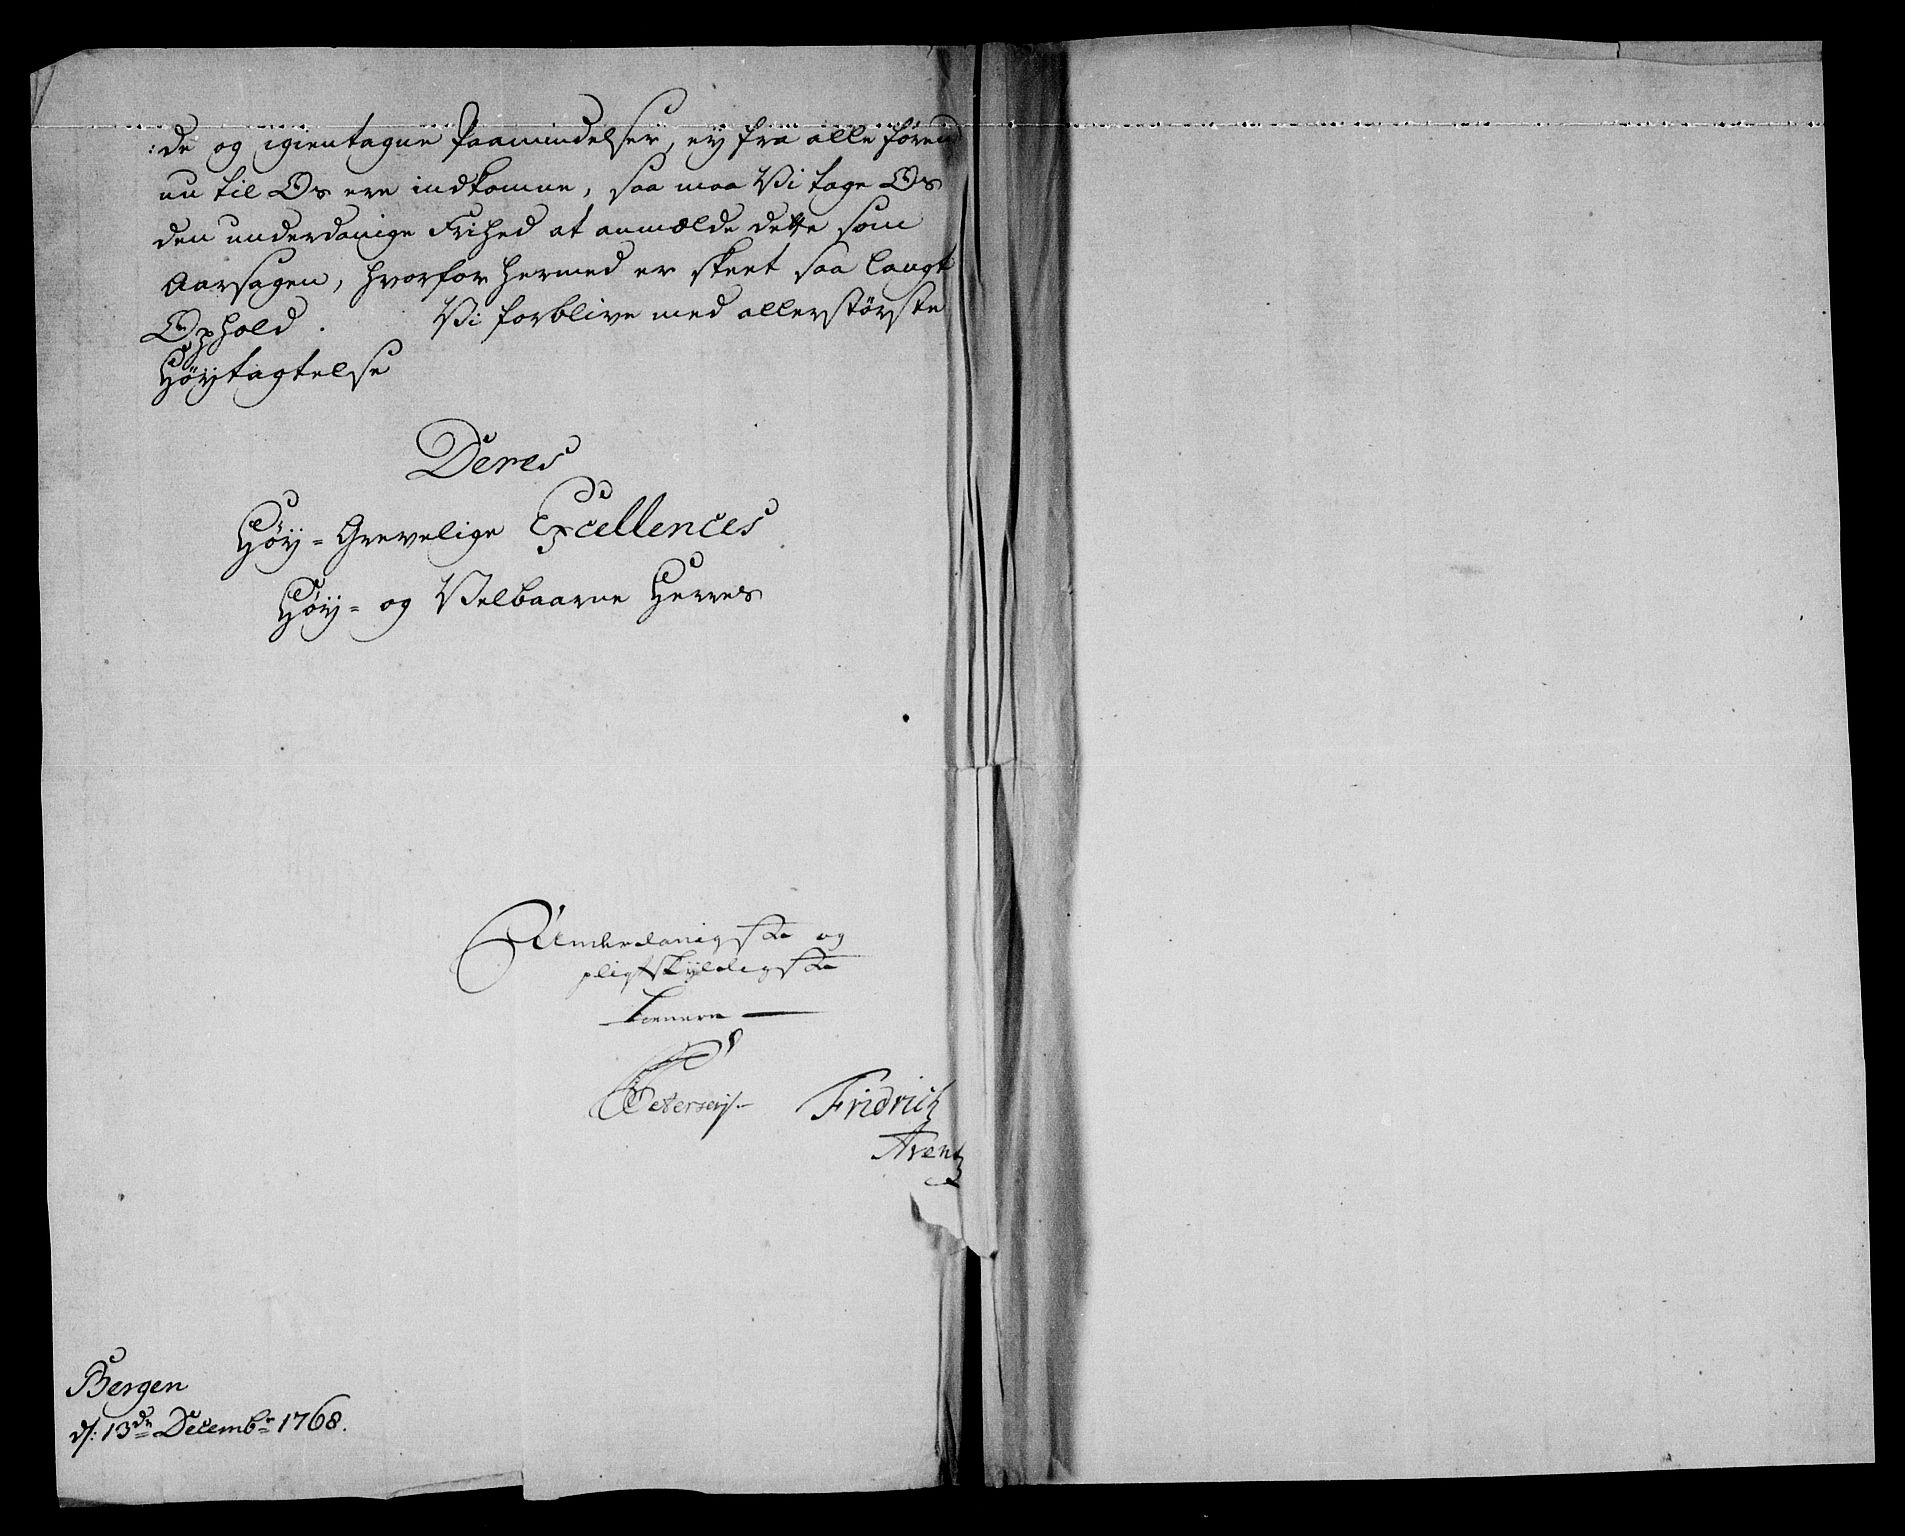 :de og igientagne Paamindelser, ey fra alle føren
nu til Os ere indkomne, saa maa Vi tage Os
den underdanige Frihed at anmælde dette som
Aarsagen, hvorfor hermed er skeet saa langt
Ophold. Vi forblive med allerstørste
Høyagtelse
Deres
Høy= Grevelige Excellences
Høy= og Velbaarne Herres
Underdanigste og
pligtskyldigste
tienere
Petersen
Fridrich
Arentz
Bergen
d: 13de Decembr 1768.